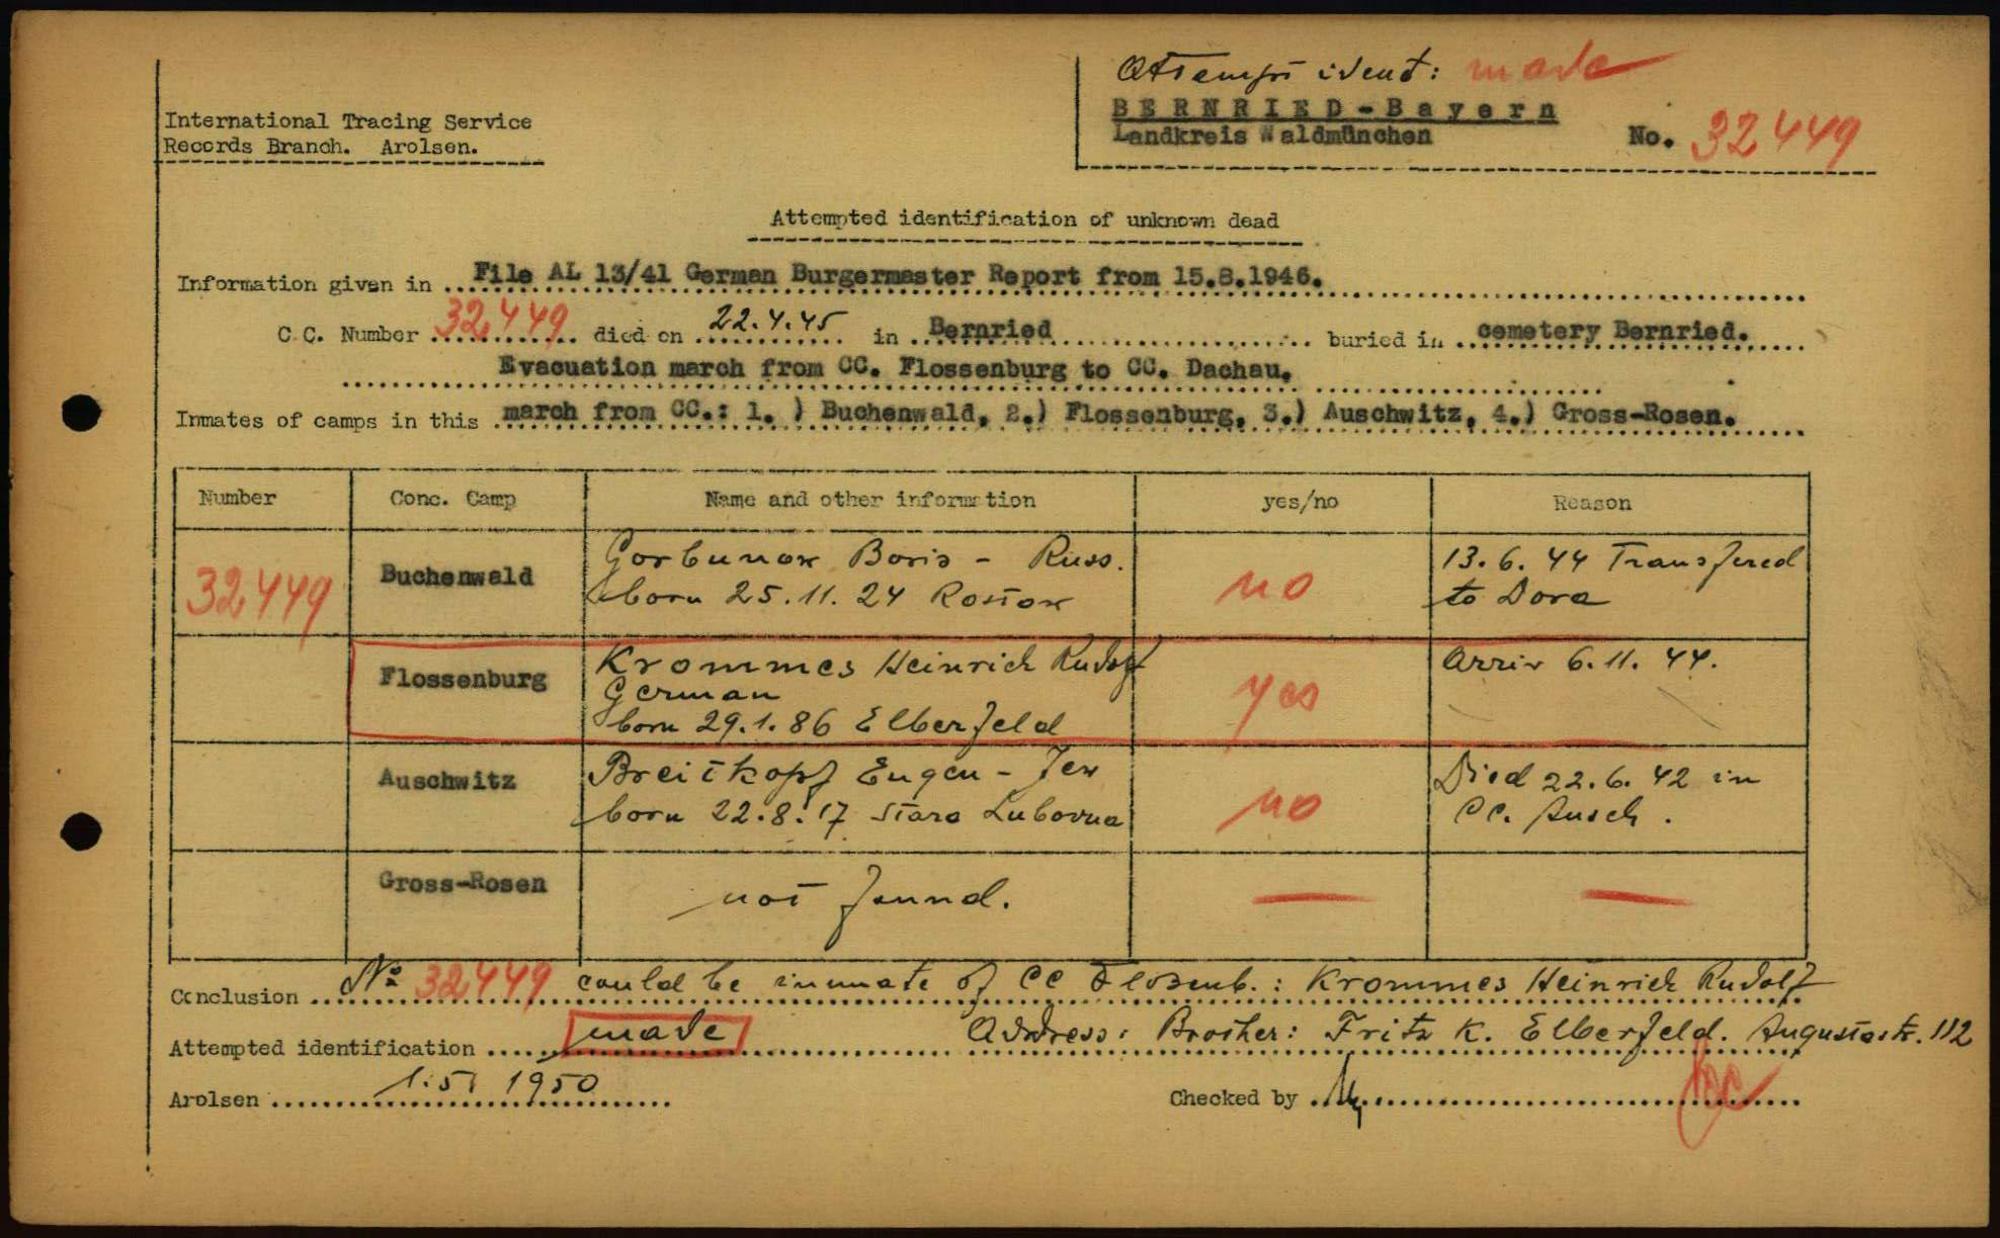 Attempt ident: made
BERNRIED-Bayern
Landkreis Waldmünchen No. 32449
International Tracing Service
Records Branch. Arolsen.
Attempted identification of unknown dead
Information given in File AL 13/41 German Burgermaster Report from 15.8.1946.
C.C. Number 32449 died on 22.4.45 in Bernried buried in cemetery Bernried.
Evacuation march from CC. Flossenburg to CC. Dachau.
Inmates of camps in this march from CC.: 1. ) Buchenwald, 2.) Flossenburg, 3.) Auschwitz, 4.) Gross-Rosen.
Number Conc. Camp Name and other information yes/no Reason
32449 Buchenwald Gorbunow Boris - Russ. no 13.6.44 Transfered
born 25.11.24 Rostow to Dora
Flossenburg Krommes Heinrich Rudolf yes Arriv 6.11.44.
German
born 29.1.86 Elberfeld
Auschwitz Breitkopf Eugen - Jew no Died 22.6.42 in
born 22.8.17 Stara Lubovna CC. Ausch.
Gross-Rosen not found. — —
Conclusion No 32449 could be inmate of CC Flosenb.: Krommes Heinrich Rudolf
Attempted identification made Address: Brother: Fritz K. Elberfeld. Augustastr. 112
Arolsen 1.5. 1950 Checked by